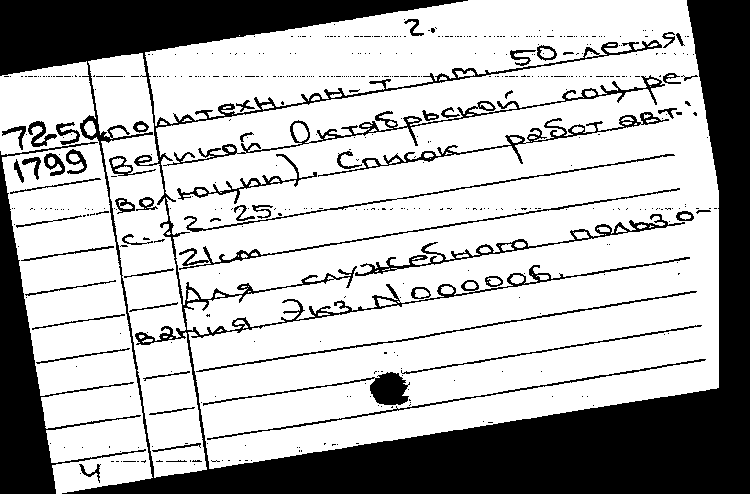 2.
72-50 политехн. ин-т им. 50-летия
1799 Великой Октябрьской соц. ре-
волюции). Список работ авт.:
с. 22-25.
21 см
Для служебного пользо-
вания Экз. N 000006.
ч